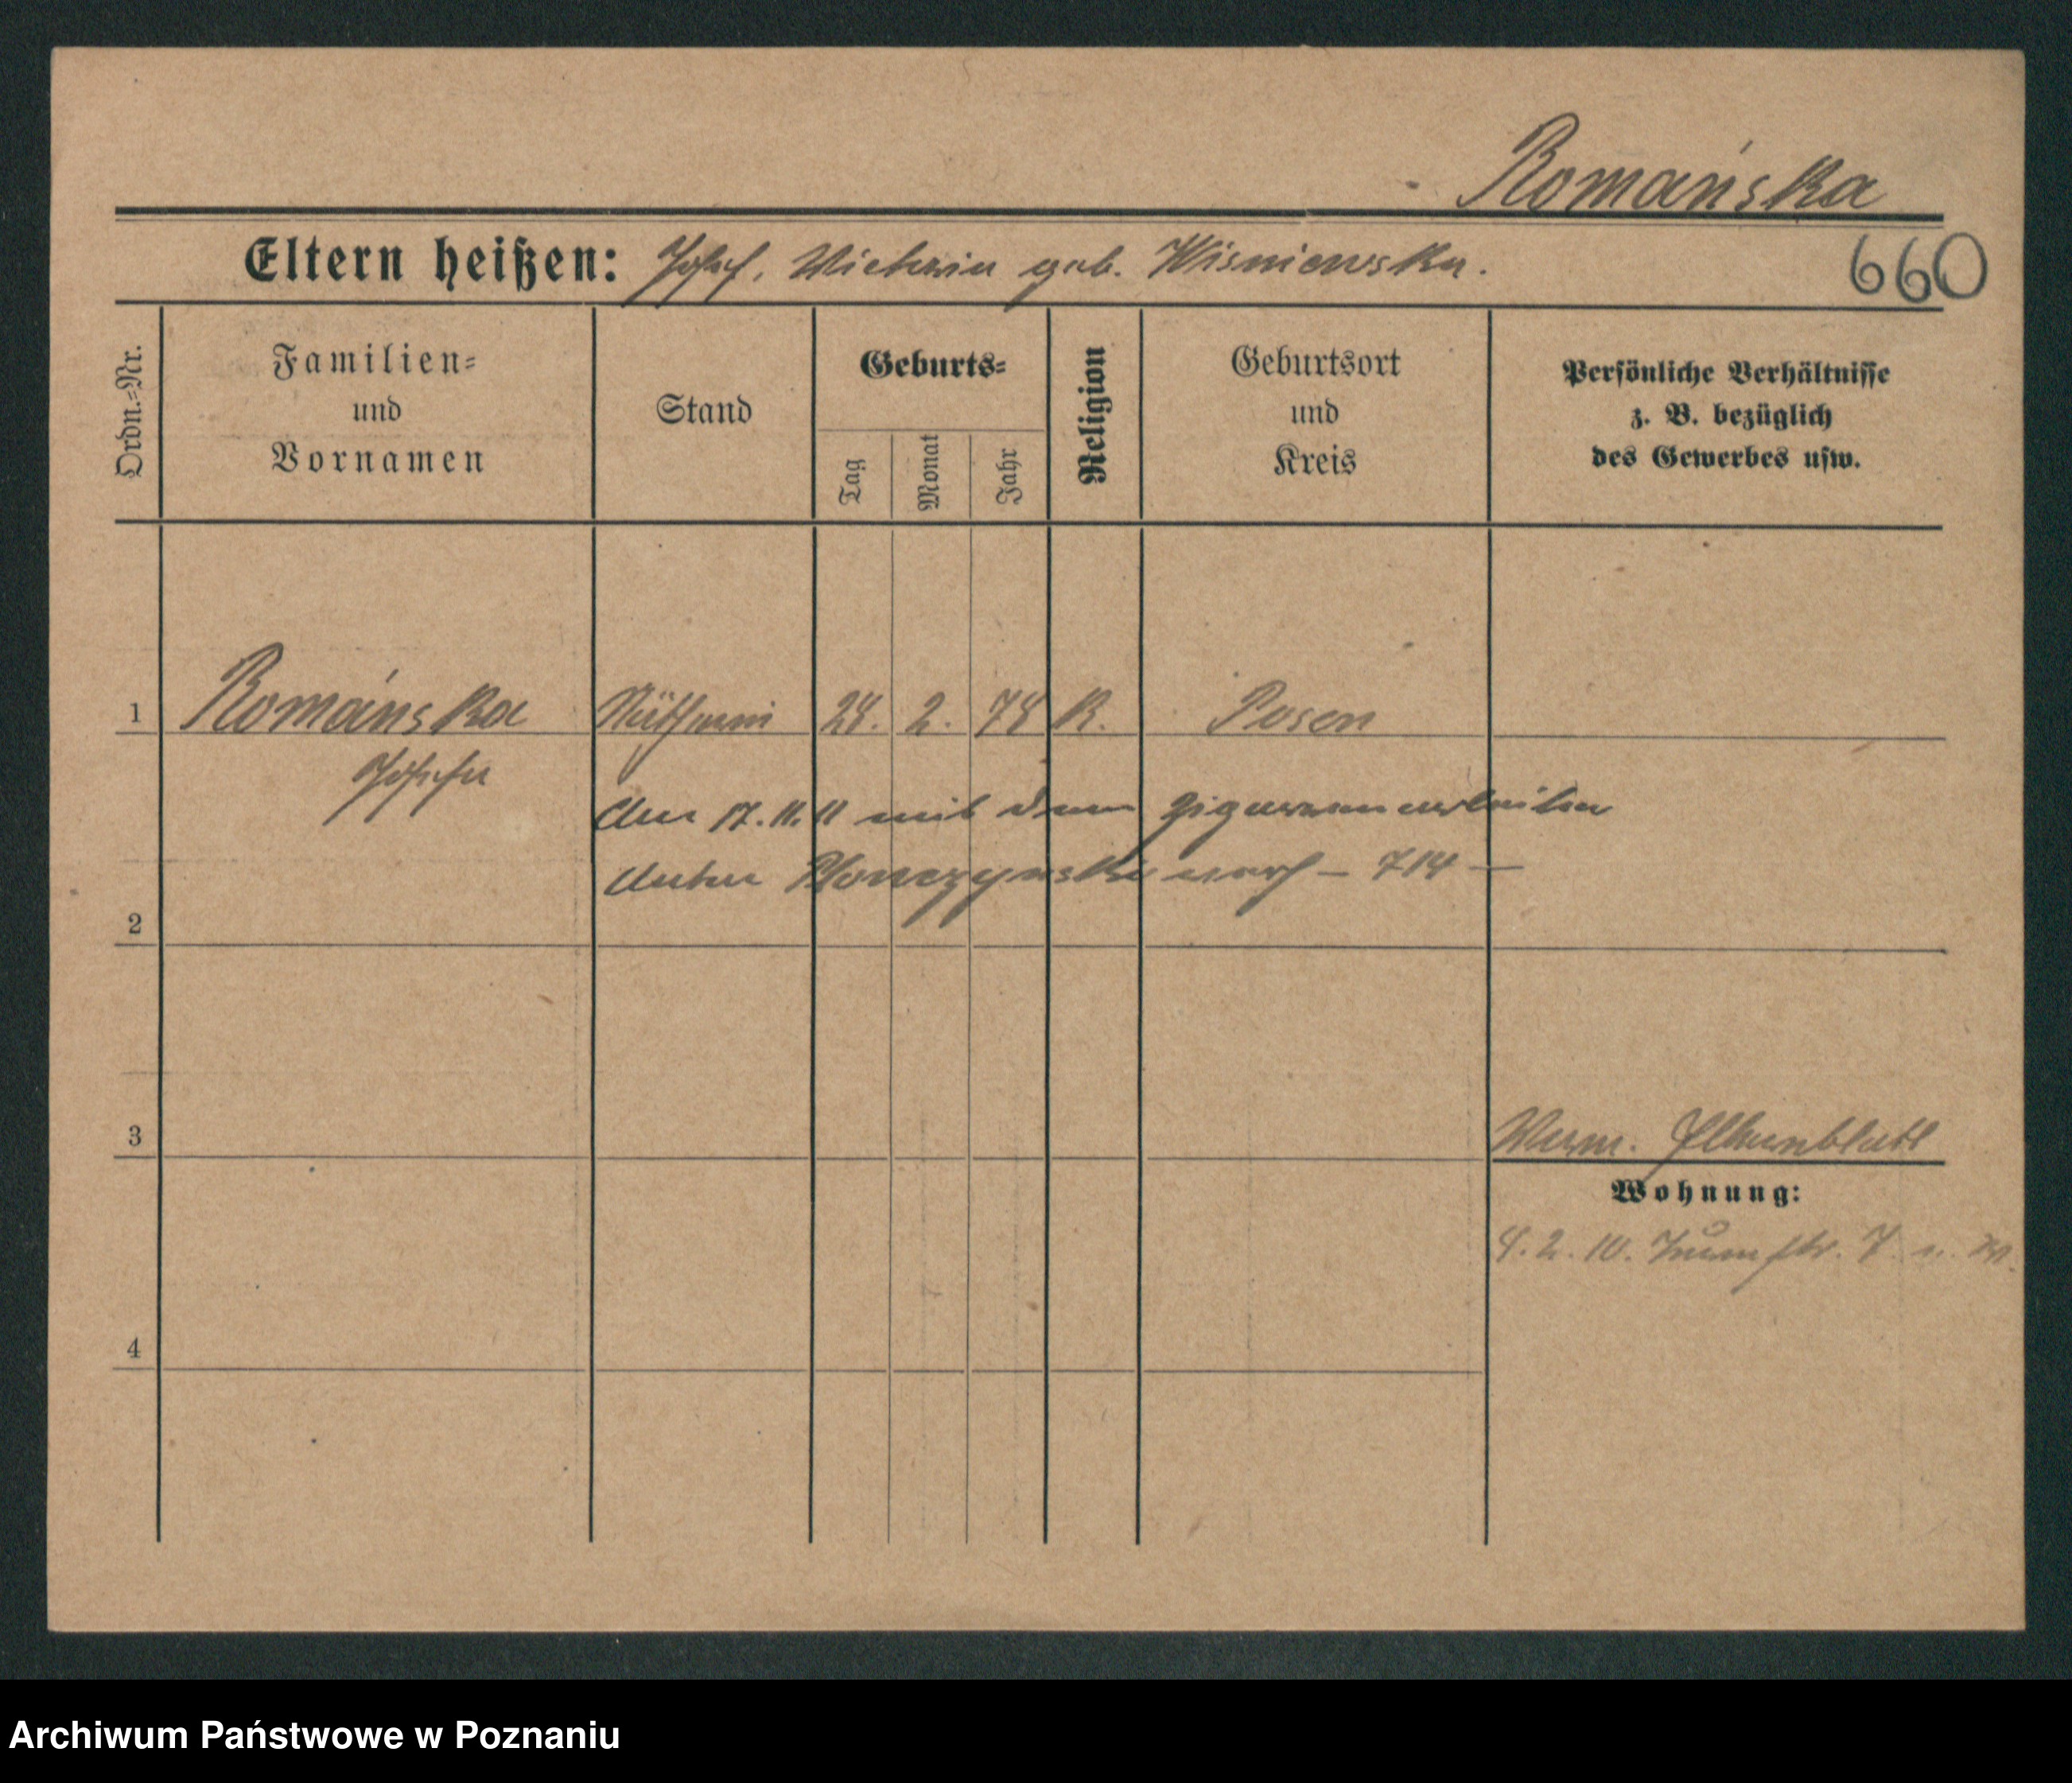 Romańska
Eltern heißen: Josef, Viktoria geb. Wisniewska.
660
Ordn.=Nr.
Familien=
und
Vornamen
Stand
Geburts=
Tag
Monat
Jahr
Religion
Geburtsort
und
Kreis
Persönliche Verhältnisse
z. B. bezüglich
des Gewerbes usw.
1 Romańska Näherin 28. 2. 78 K. Posen
Josefa
Am 17.11.11 mit dem Zigarrenarbeiter
Anton verh – 714 –
2
3
Elternblatt
Wohnung:
Turmstr. 7
4
Archiwum Państwowe w Poznaniu